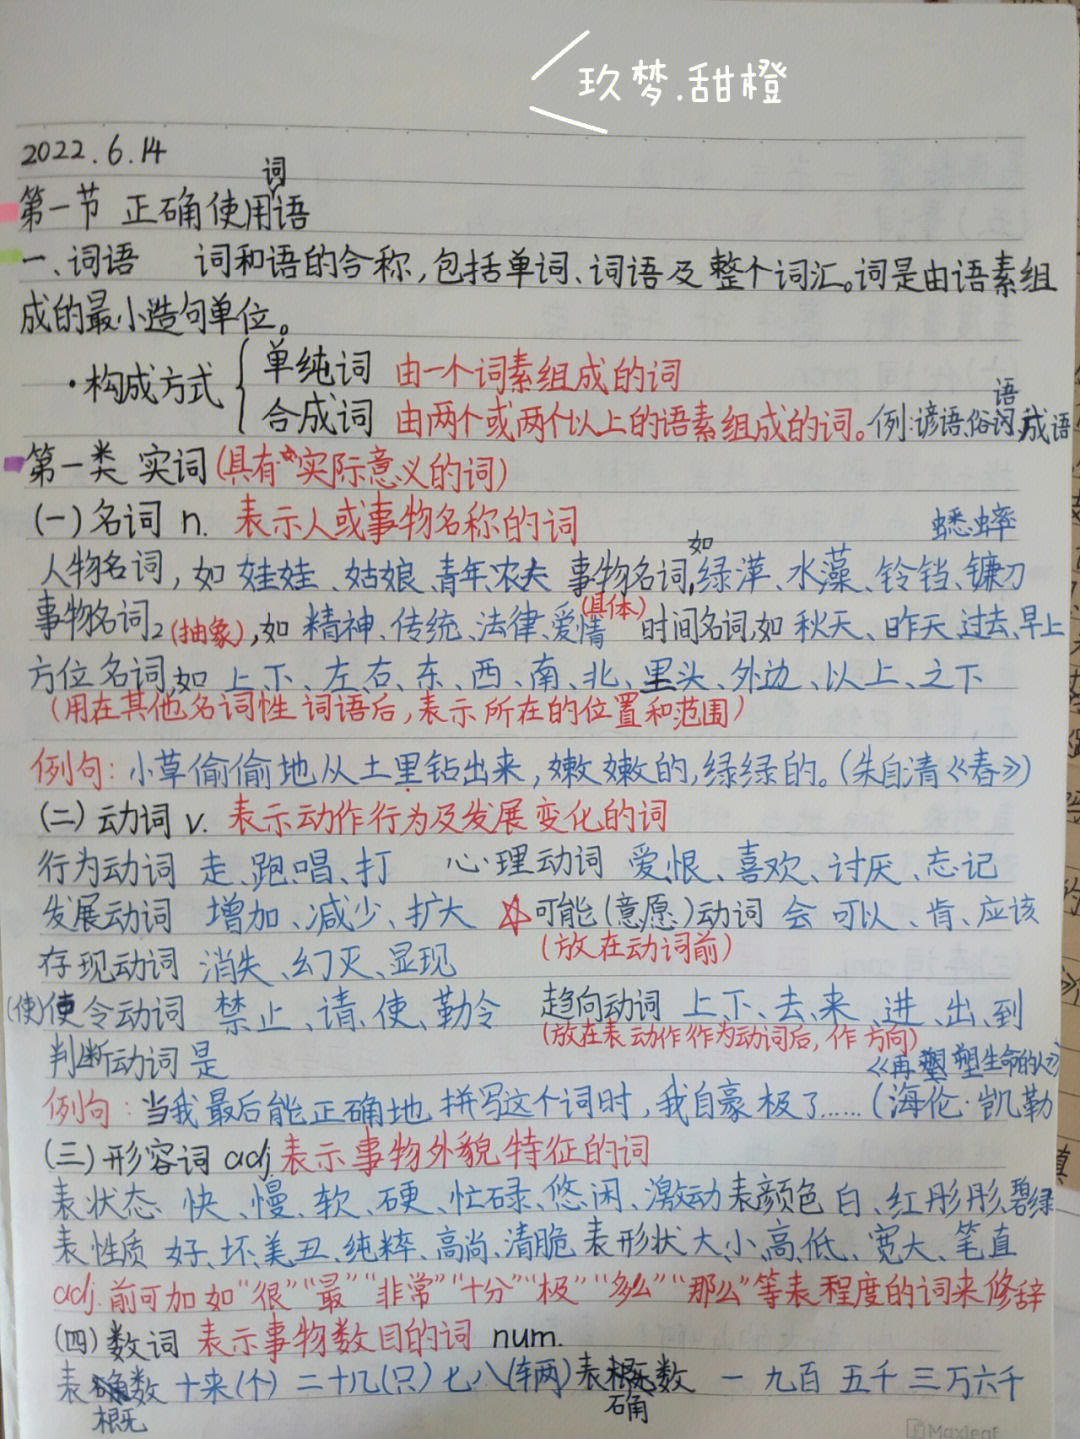 玖梦.甜橙
2022.6.14
第一节 正确使用词语
一、词语 词和语的合称,包括单词、词语及整个词汇。词是由语素组
成的最小造句单位。
·构成方式 { 单纯词 由一个词素组成的词
合成词 由两个或两个以上的语素组成的词。例:谚语、俗语、成语
第一类 实词(具有实际意义的词)
(一)名词 n. 表示人或事物名称的词 蟋蟀
人物名词,如 娃娃、姑娘、青年、农夫 事物名词,如 绿萍、水藻、铃铛、镰刀
(具体)
事物名词2(抽象),如 精神、传统、法律、爱情 时间名词,如 秋天、昨天、过去、早上
方位名词如 上、下、左、右、东、西、南、北、里头、外边、以上、之下
(用在其他名词性词语后,表示所在的位置和范围)
例句:小草偷偷地从土里钻出来,嫩嫩的,绿绿的。(朱自清《春》)
(二)动词 v. 表示动作行为及发展变化的词
行为动词 走、跑、唱、打 心理动词 爱、恨、喜欢、讨厌、忘记
发展动词 增加、减少、扩大 ☆可能(意愿)动词 会 可以、肯、应该
(放在动词前)
存现动词 消失、幻灭、显现
(使)使令动词 禁止、请、使、勒令 趋向动词 上、下、去、来、进、出、到
(放在表动作作为动词后,作方向)
判断动词 是 《再塑生命的人》
例句:当我最后能正确地拼写这个词时,我自豪极了……(海伦·凯勒
(三)形容词 adj 表示事物外貌特征的词
表状态 快、慢、软、硬、忙碌、悠闲、激动 表颜色 白、红彤彤、碧绿
表性质 好、坏、美、丑、纯粹、高尚、清脆 表形状 大、小、高、低、宽大、笔直
adj.前可加如“很”“最”“非常”“十分”“极”“多么”“那么”等表程度的词来修辞
(四)数词 表示事物数目的词 num.
表概数 十来(个) 二十几(只) 七八(车两) 表确数 一 九百 五千 三万六千
Maxleaf